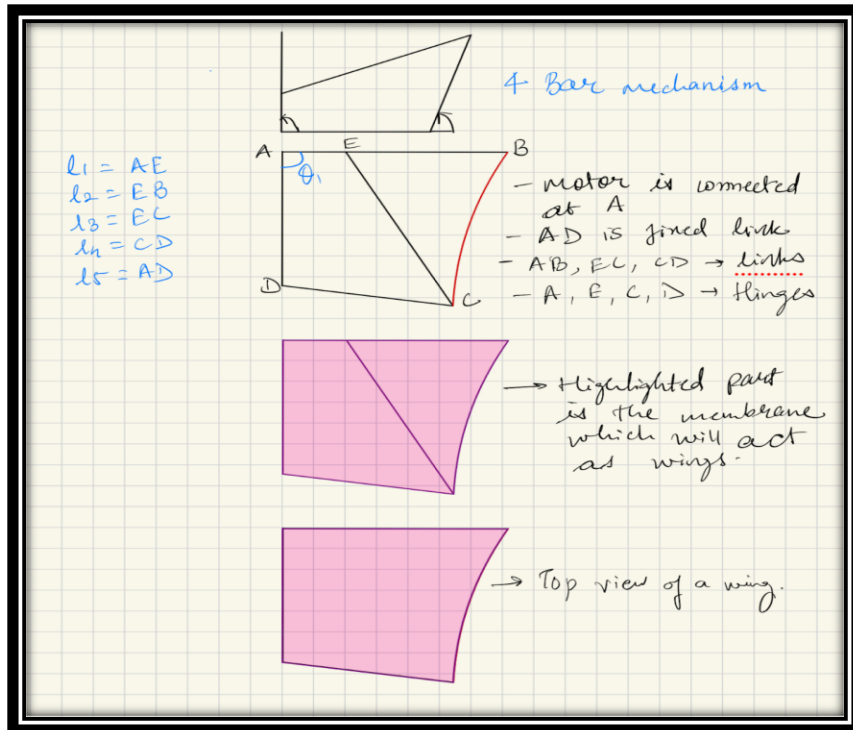 4 Bar mechanism
A
E
B
θ1
D
C
l1 = AE
l2 = EB
l3 = EC
l4 = CD
l5 = AD
- motor is connected
at A
- AD is fixed link
- AB, EC, CD → links
- A, E, C, D → Hinges
→ Highlighted part
is the membrane
which will act
as wings.
→ Top view of a wing.